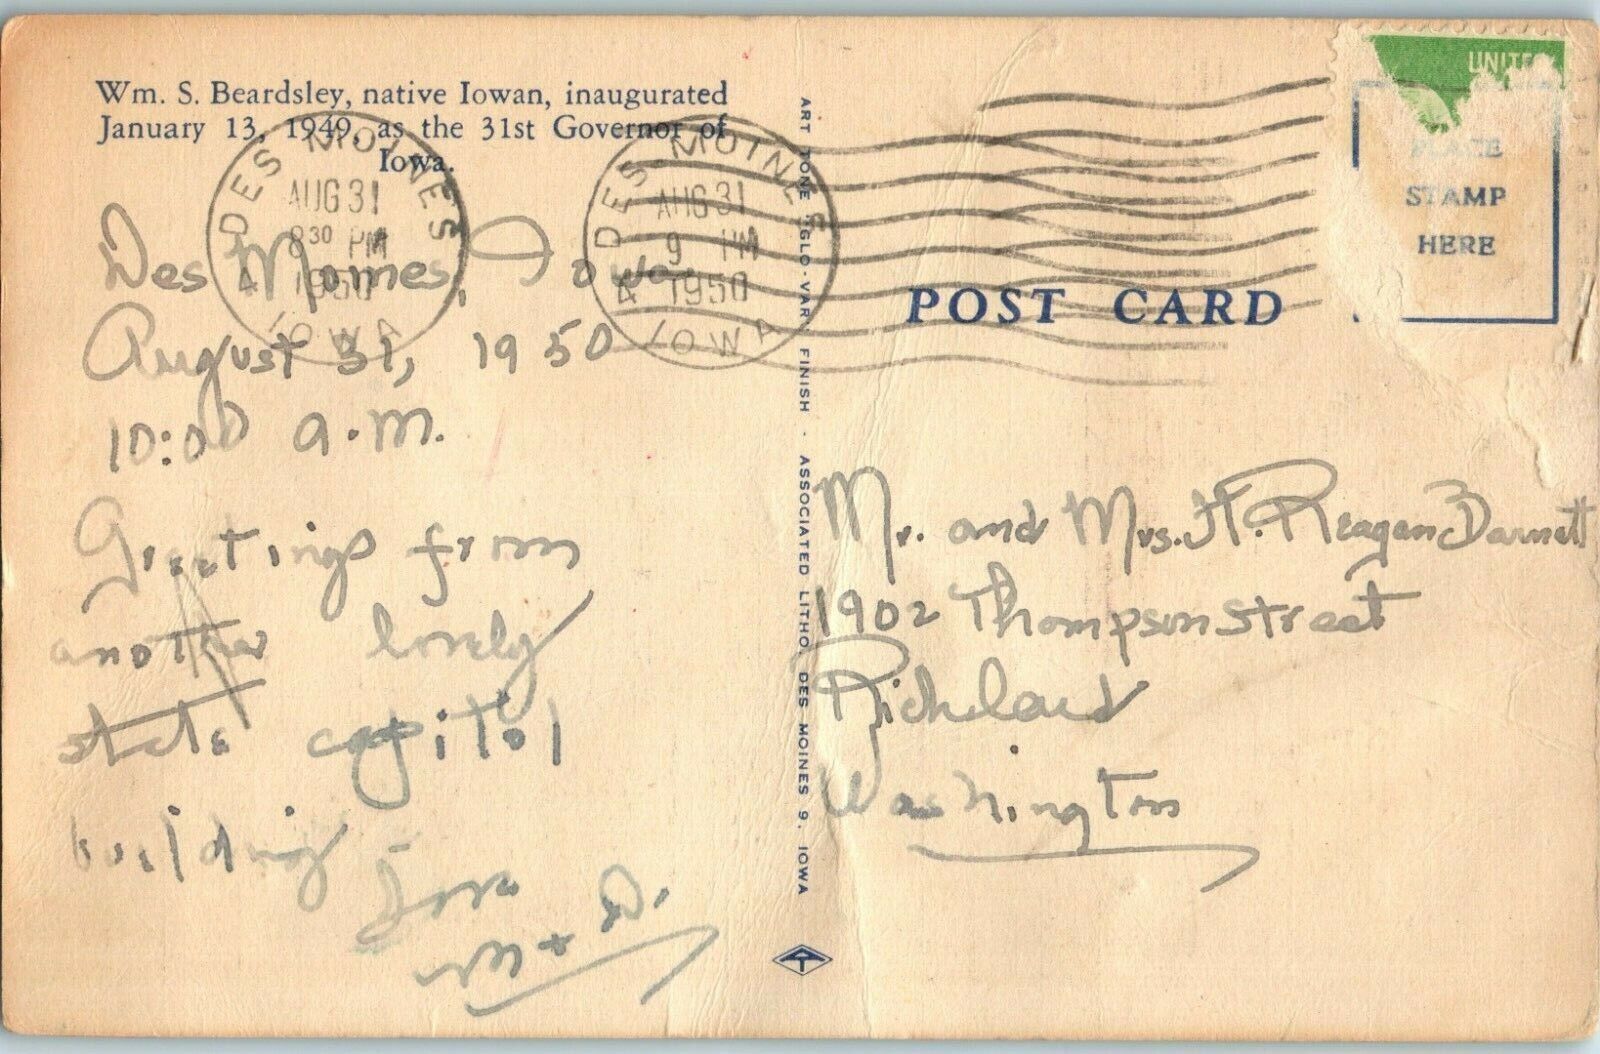 Wm. S. Beardsley, native Iowan, inaugurated
January 13, 1949, as the 31st Governor of
Iowa.
DES MOINES
AUG 31
8 30 PM
1950
IOWA
DES MOINES
AUG 31
9 PM
1950
IOWA
UNITE
PLACE
STAMP
HERE
POST CARD
Des Moines, Iowa
August 31, 1950
10:00 a.m.
Greetings from
another lovely
state capitol
building
Love
M + D.
ART TONE "GLO-VAR" FINISH - ASSOCIATED LITHO. DES MOINES 9, IOWA
Mr. and Mrs. H. Reagan Barnett
1902 Thompson Street
Richland
Washington